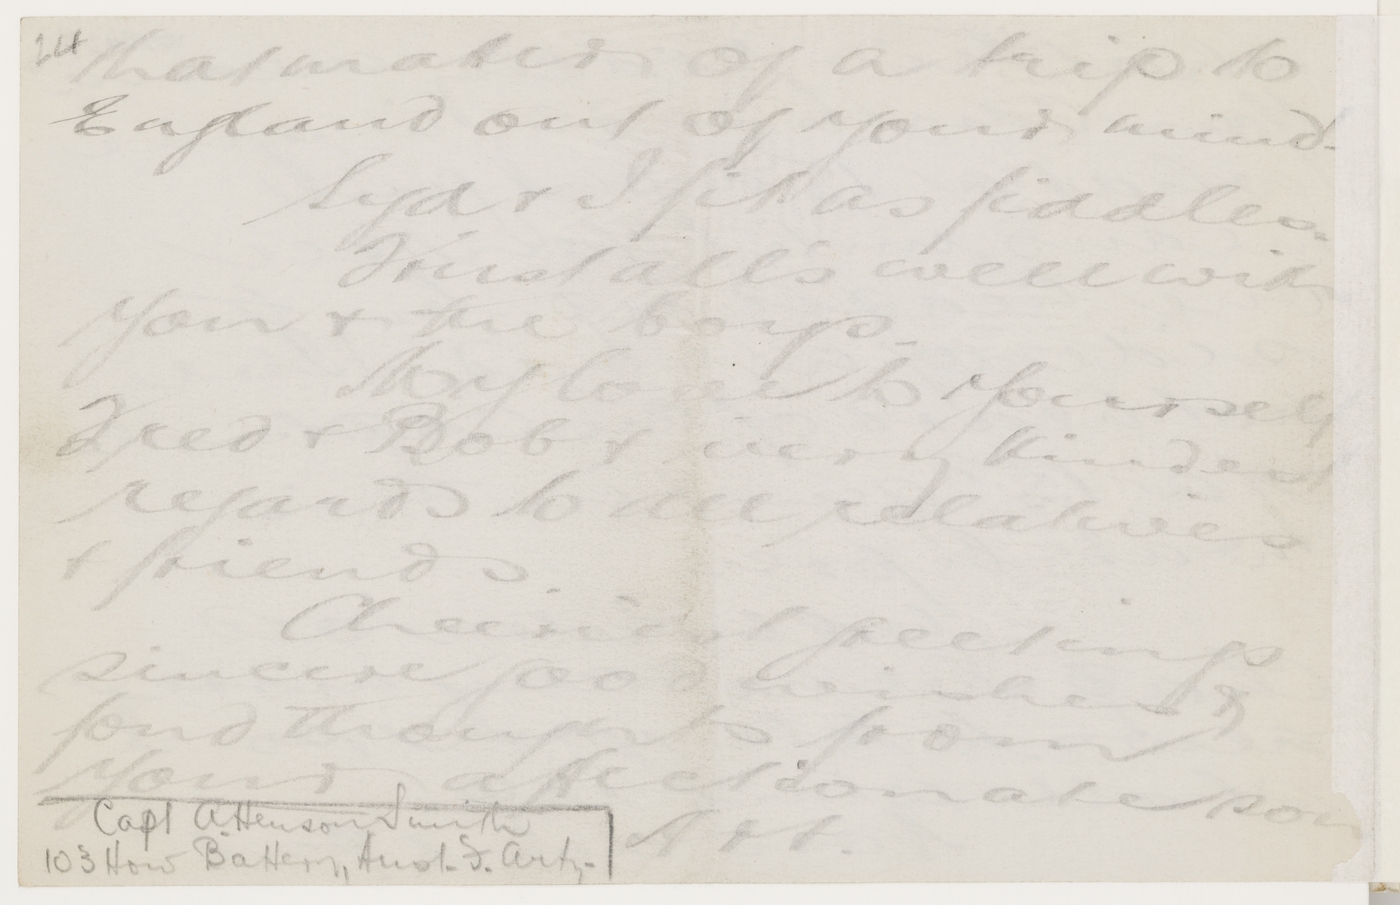 24
that matter of a trip to
England out of your mind.
Syd & I fit as fiddles.
Trust all's well with
you & the boys.
My love to yourself
Fred & Bob & very kindest
regards to all relatives
& friends.
Cheeriest greetings
sincere good wishes &
fond thoughts from
your affectionate son
Capt A. Henson Smith
103 How Battery, Aust. F. Arty.